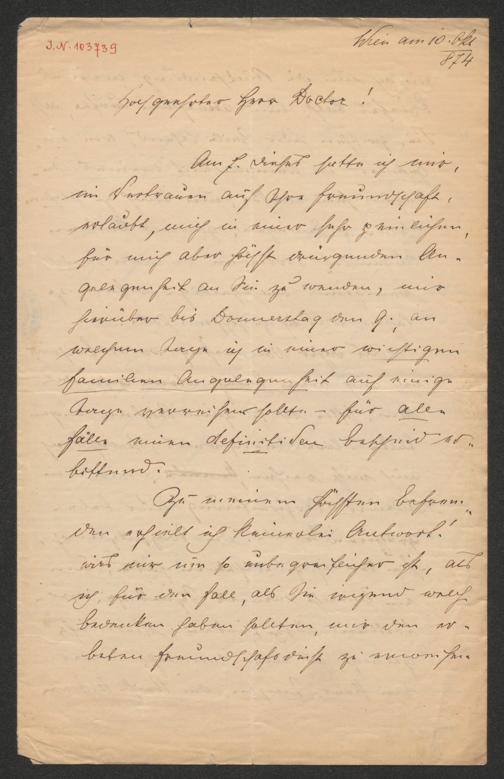 J.N. 103739
Wien am 10. Okt
874
Hochgeehrter Herr Doctor!
Am 7. dieses hatte ich mir,
im Vertrauen auf Ihre Freundschaft,
erlaubt, mich in einer sehr peinlichen,
für mich aber höchst dringenden An-
gelegenheit an Sie zu wenden, mir
hierüber bis Donnerstag den 9., an
welchem Tage ich in einer wichtigen
Familien Angelegenheit auf einige
Tage verreisen sollte – für alle
Fälle einen definitiven Bescheid er-
bittend.
Zu meinem höchsten Befrem-
den erhielt ich keinerlei Antwort!
was mir um so unbegreiflicher ist, als
ich für den Fall, als Sie irgend welch
Bedenken haben sollten, mir den er-
beten Freundschaftsdienst zu erweisen